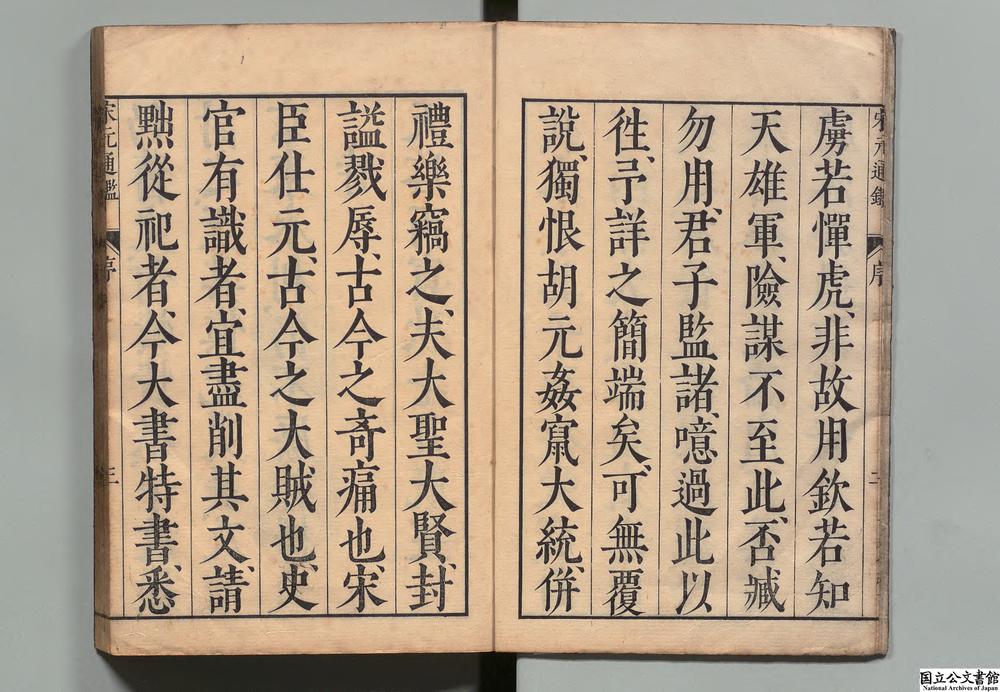 虜若憚虎、非故用欽若知
天雄軍、險謀不至此、否臧
勿用、君子監諸、噫過此以
徃、予詳之簡端矣、可無覆
說、獨恨胡元姦竄大統、併
禮樂竊之、夫大聖大賢、封
謚戮辱、古今之奇痛也、宋
臣仕元、古今之大賊也、史
官有識者、宜盡削其文、請
黜從祀者、今大書特書、悉
宋元通鑑
序
三
国立公文書館
National Archives of Japan